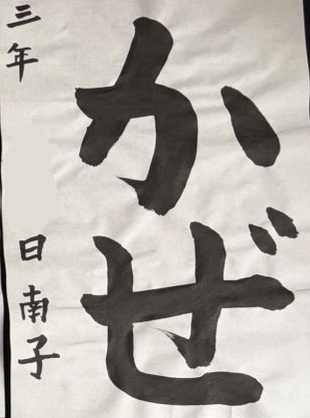 かぜ
三年
日南子